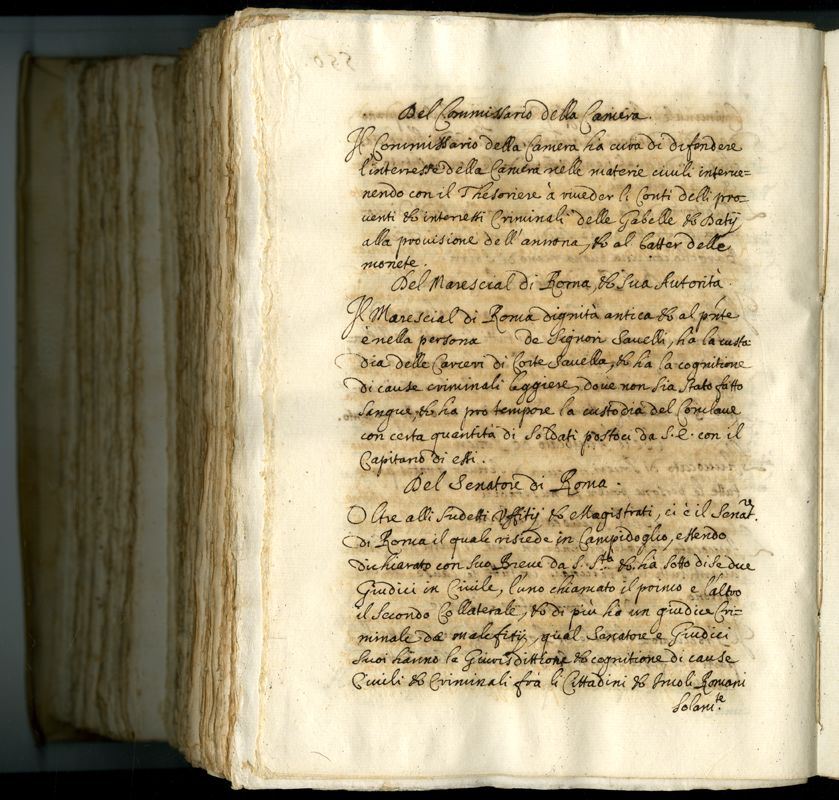 550.
Del Commissario della Camera.
Il Commissario della Camera ha cura di difendere
l'interesse della Camera nelle materie civili interue=
nendo con il Thesoriere à riueder li Conti delli pro=
uenti & interessi Criminali delle Gabelle & Datij
alla prouisione dell'annona, & al batter delle
monete.
Del Marescial di Roma, & sua Autorità.
Il Marescial di Roma dignità antica & al pñte
è nella persona de Signori Sauelli, ha la custo
dia delle Carceri di Corte Sauella, & ha la cognitione
di cause criminali leggiere, doue non sia stato fatto
sangue, & ha pro tempore la custodia del Conclaue
con certa quantità di soldati postoci da S. C. con il
Capitano di essi.
Del Senatore di Roma.
Oltre alli sudetti Uffitij & Magistrati, ci è il Senat.re
di Roma il quale risiede in Campidoglio, essendo
dichiarato con suo Breue da S. S.tà & ha sotto di se due
Giudici in Ciuile, l'uno chiamato il primo e l'altro
il secondo Collaterale, & di più ha un giudice Cri=
minale de malefitij, qual Senatore e Giudici
suoi hanno la Giurisdittione & cognitione di cause
Ciuili & Criminali frà li Cittadini & Incoli Romani
solam.te